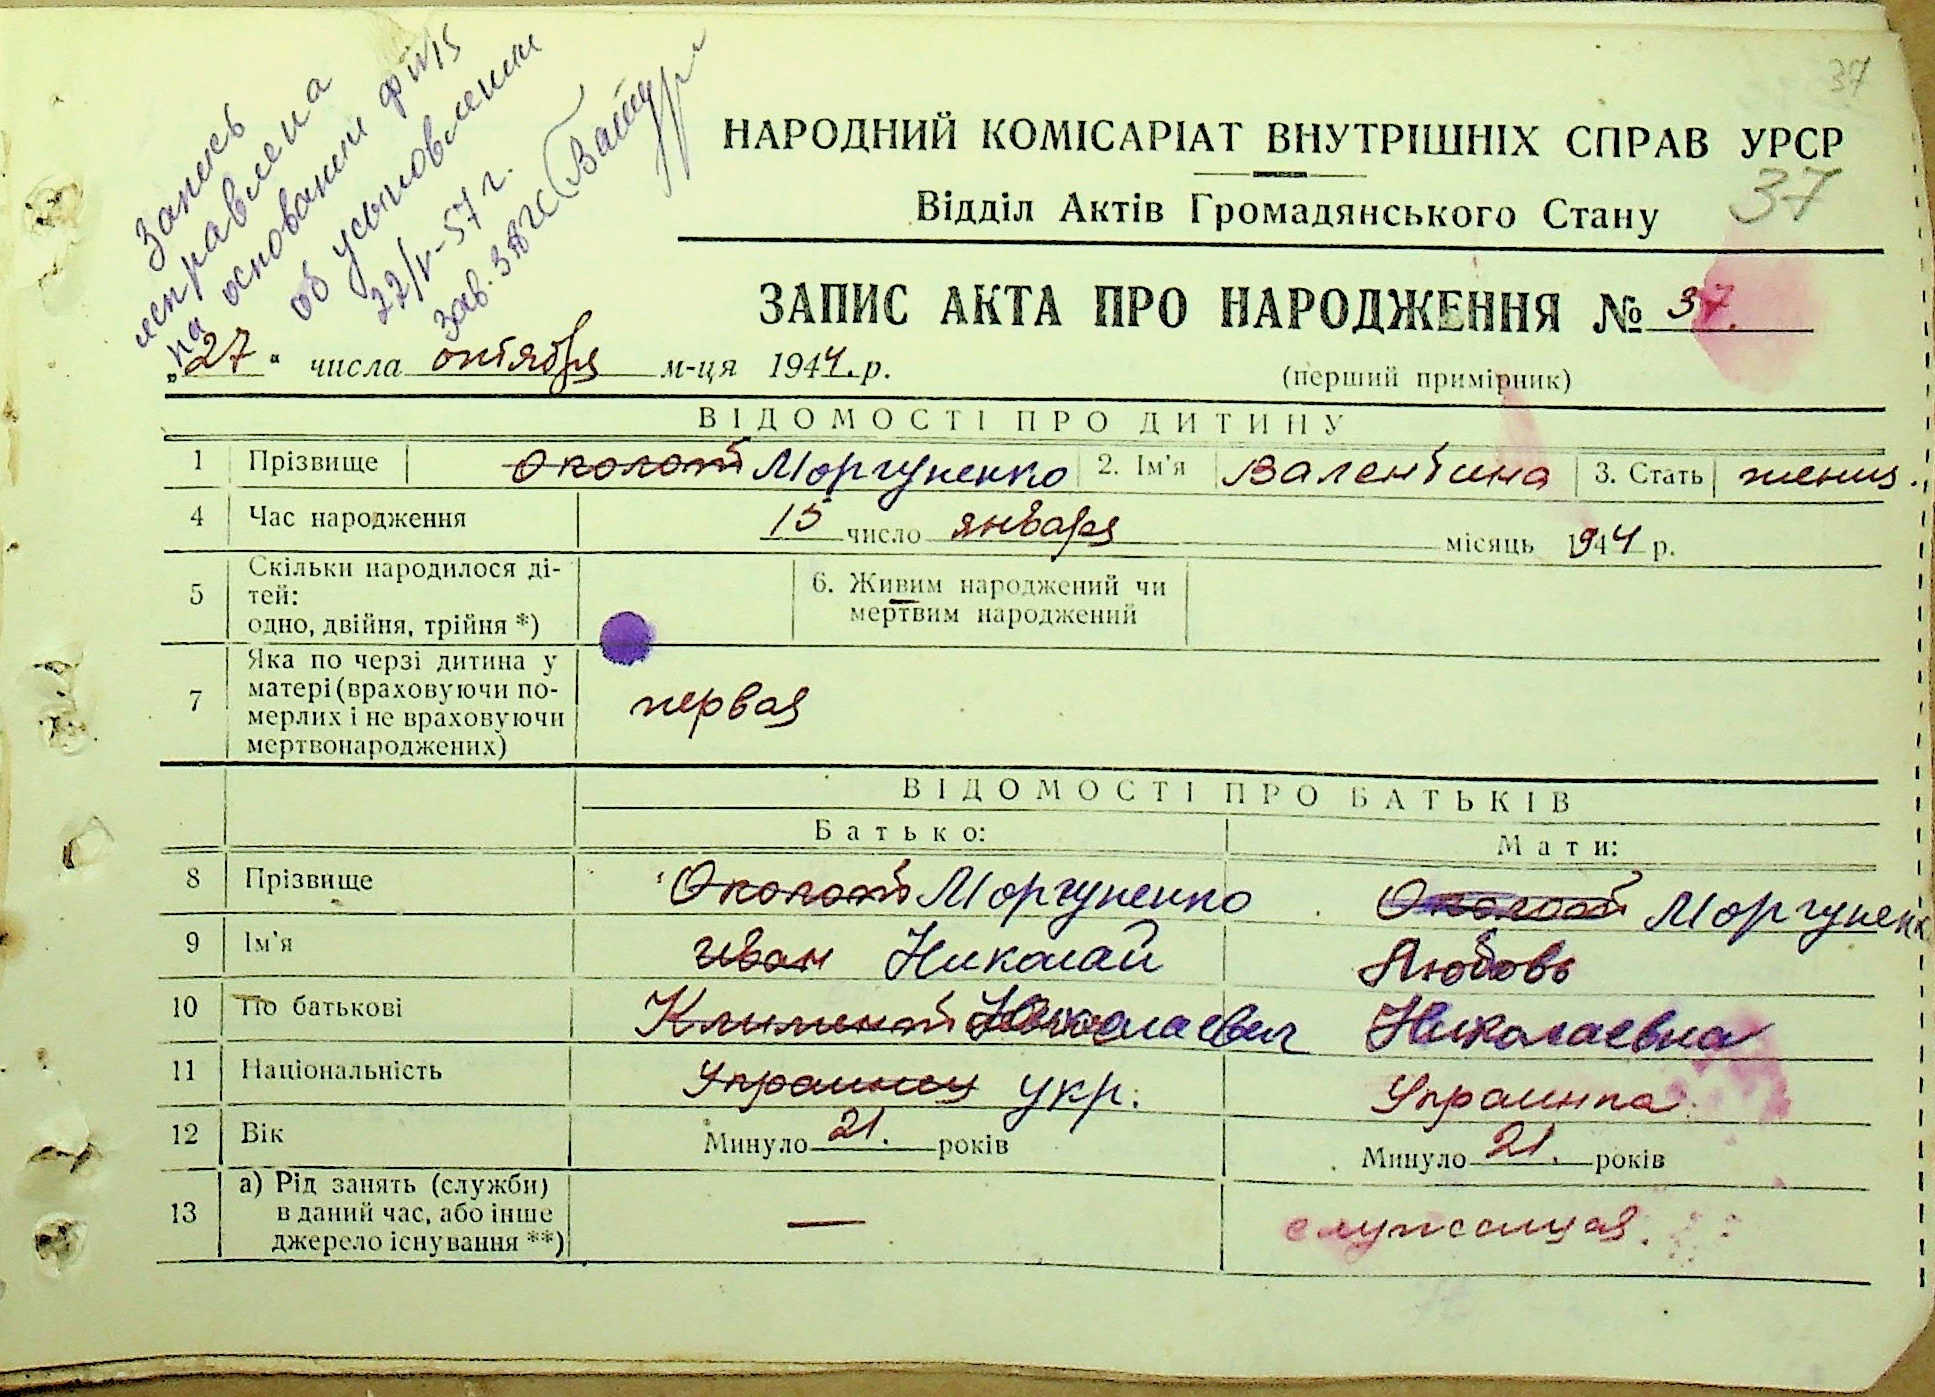 37
Запись
исправлена
на основании ф №15
об усыновлении
22/V-57 г.
Зав. ЗАГС
НАРОДНИЙ КОМІСАРІАТ ВНУТРІШНІХ СПРАВ УРСР
37
Відділ Актів Громадянського Стану
ЗАПИС АКТА ПРО НАРОДЖЕННЯ № 37.
„27“ числа октября м-ця 1944.р.
(перший примірник)
ВІДОМОСТІ ПРО ДИТИНУ
1 Прізвище Околот Моргуненко 2. Ім'я Валентина 3. Стать женск.
4 Час народження 15 число января місяць 1944 р.
5 Скільки народилося ді-
тей:
одно, двійня, трійня *)
6. Живим народжений чи
мертвим народжений
7 Яка по черзі дитина у
матері (враховуючи по-
мерлих і не враховуючи
мертвонароджених)
первая
ВІДОМОСТІ ПРО БАТЬКІВ
Батько: Мати:
8 Прізвище Околот Моргуненко Околот Моргуненк
9 Ім'я Иван Николай Любовь
10 По батькові Николаевич Николаевна
11 Національність Украинец укр. Украинка
12 Вік Минуло 21. років Минуло 21. років
13 а) Рід занять (служби)
в даний час, або інше
джерело існування **)
— служащая.